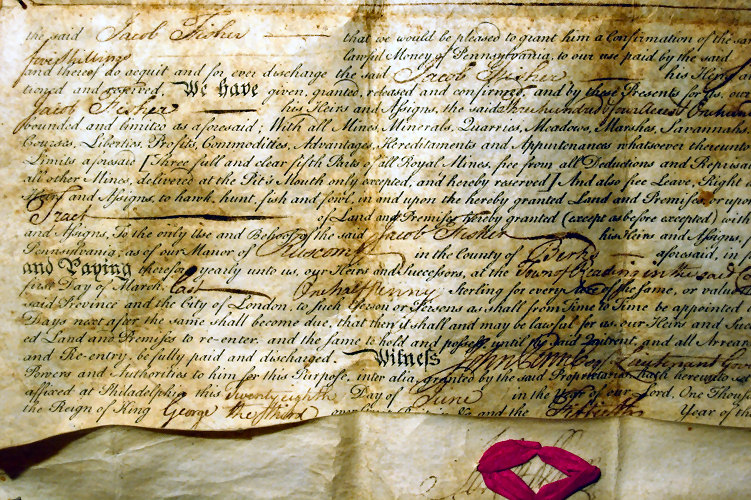 the said Jacob Fisher that we would be pleased to grant him a Confirmation of the sam
five Shillings lawful Money of Pennsylvania, to our use paid by the said
and thereof do acquit and for ever discharge the said Jacob Fisher his Heirs
tioned and reserved, We have given, granted, released and confirmed, and by these Presents for us, our
Jacob Fisher his Heirs and Assigns, the said three hundred
bounded and limited as aforesaid; With all Mines, Minerals, Quarries, Meadows, Marshes, Savannahs
Courses, Liberties, Profits, Commodities, Advantages, Hereditaments and Appurtenances whatsoever thereunto
Limits aforesaid [Three full and clear fifth Parts of all Royal Mines, free from all Deductions and Reprisals
all other Mines, delivered at the Pit's Mouth only excepted, and hereby reserved] And also free Leave, Right
Heirs and Assigns, to hawk, hunt, fish and fowl, in and upon the hereby granted Land and Premises, or upon
Tract of Land and Premises hereby granted (except as before excepted) with
and Assigns, To the only Use and Behoof of the said Jacob Fisher his Heirs and Assigns,
Pennsylvania, as of our Manor of in the County of Berks aforesaid, in f
and Paying therefor yearly unto us, our Heirs and Successors, at the Town of Reading in the said C
first Day of March, East One half Penny Sterling for every Acre of the same, or value
said Province and the City of London, to such Person or Persons as shall from Time to Time be appointed
Days next after the same shall become due, that then it shall and may be lawful for us, our Heirs and Suc
ed Land and Premises to re-enter, and the same to hold and possess, until the said Quitrent, and all Arrear
and Re-entry, be fully paid and discharged. Witness John Penn Esqr. Lieutenant Gov
Powers and Authorities to him for this Purpose, inter alia, granted by the said Proprietaries, hath hereunto se
affixed at Philadelphia this Twenty eighth Day of June in the year of our Lord, One Thous
the Reign of King George the Third over and the Year of th